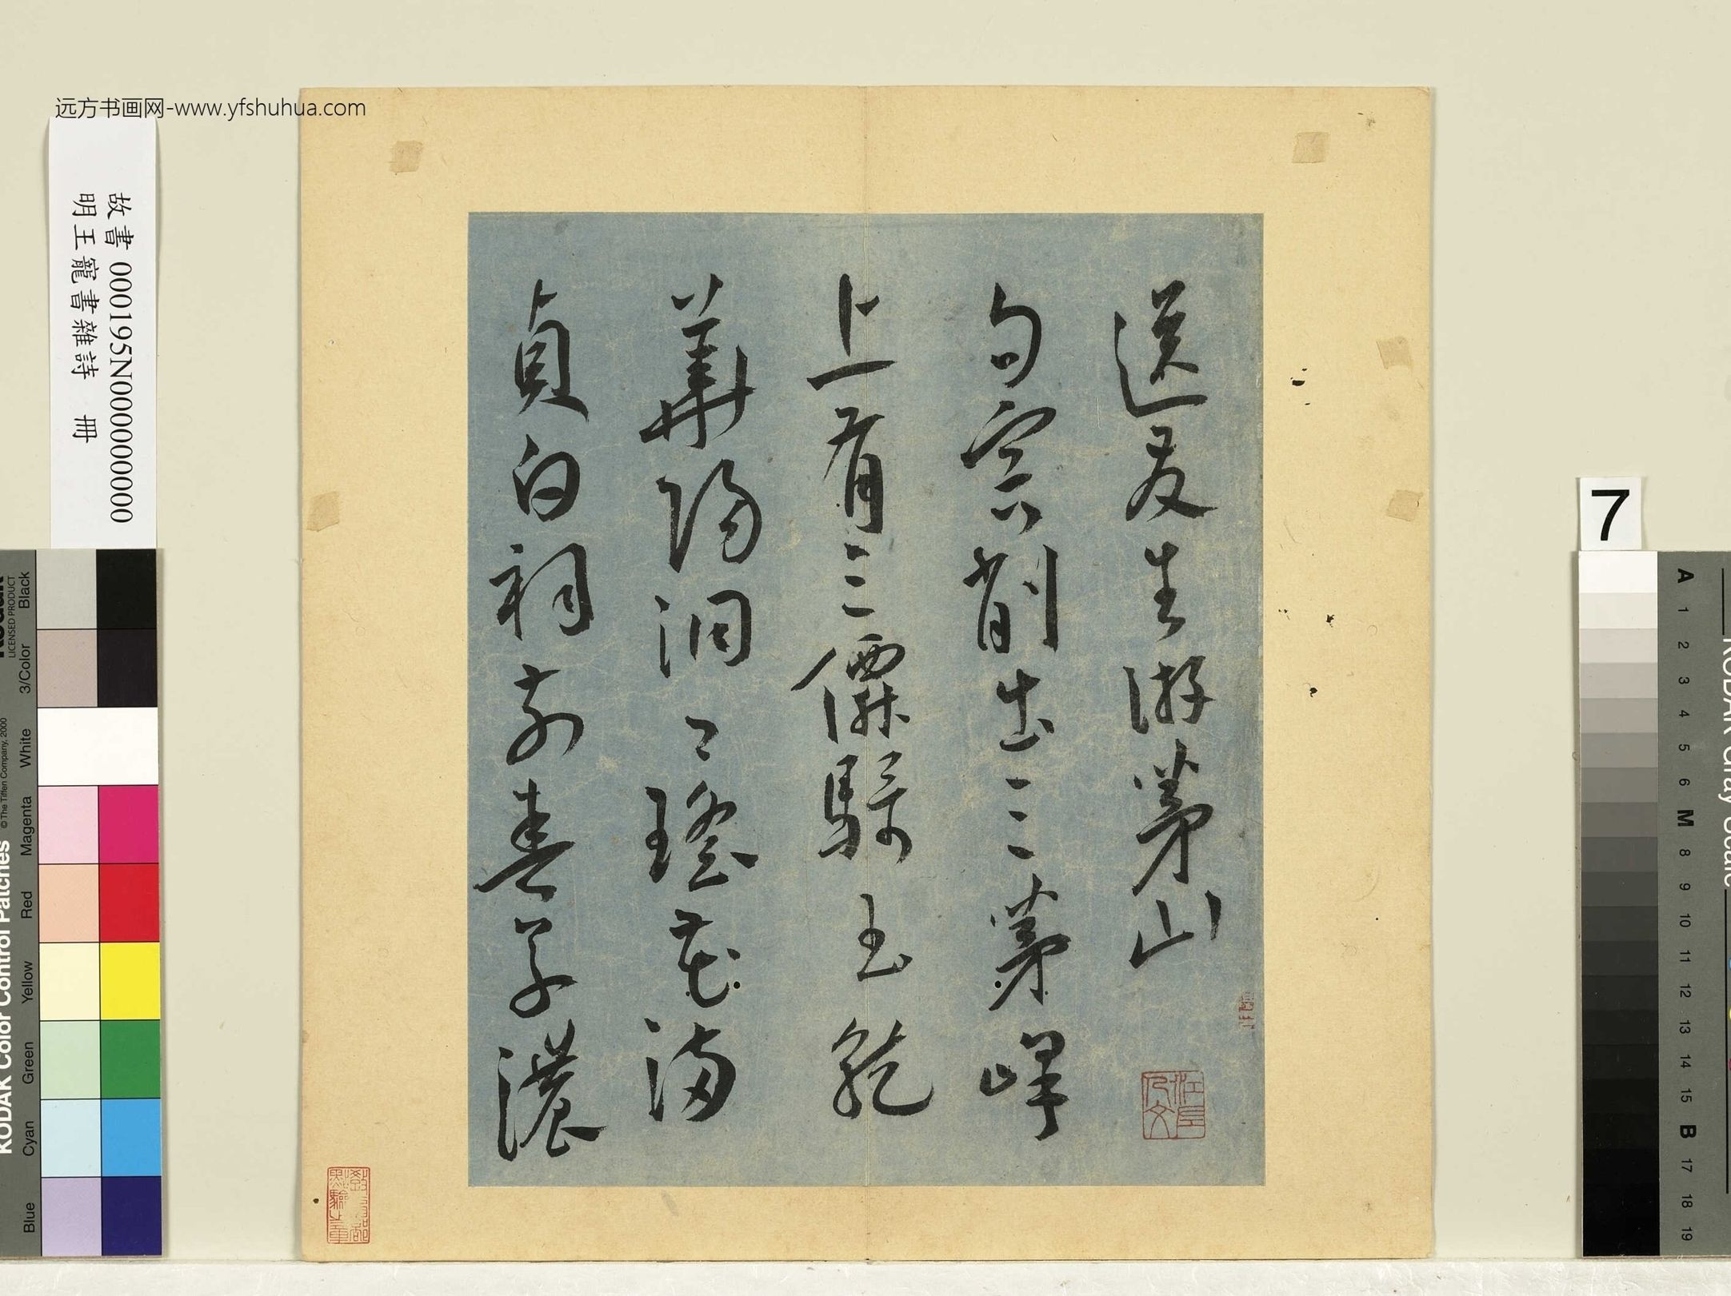 远方书画网-www.yfshuhua.com
故書 000195N000000000
明王寵書雜詩 冊
送友生游茅山
句容削出三茅峰
上有三僊騎玉龍
華陽洞〻瑤花滿
貞白祠前春草濃
教育部點驗之章
7
KODAK Color Control Patches
© The Tiffen Company, 2000
LICENSED PRODUCT
Black
3/Color
White
Magenta
Red
Yellow
Green
Cyan
Blue
A
1
2
3
4
5
6
M
8
9
10
11
12
13
14
15
B
17
18
19